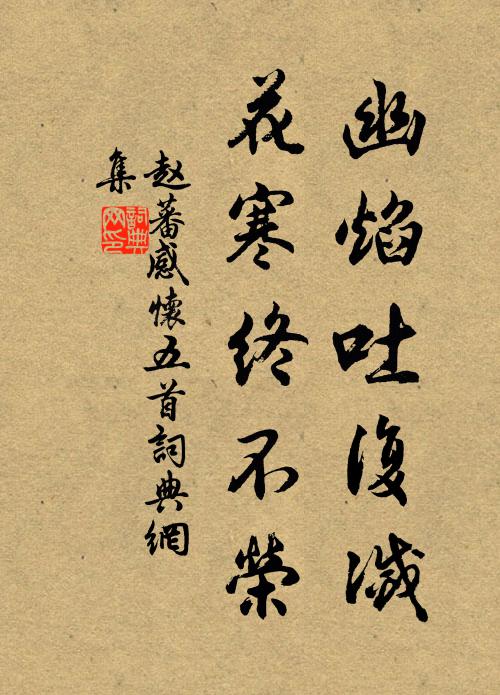 幽焰吐復滅
花寒終不榮
赵蕃感懷五首詞典網
集
詞典網印